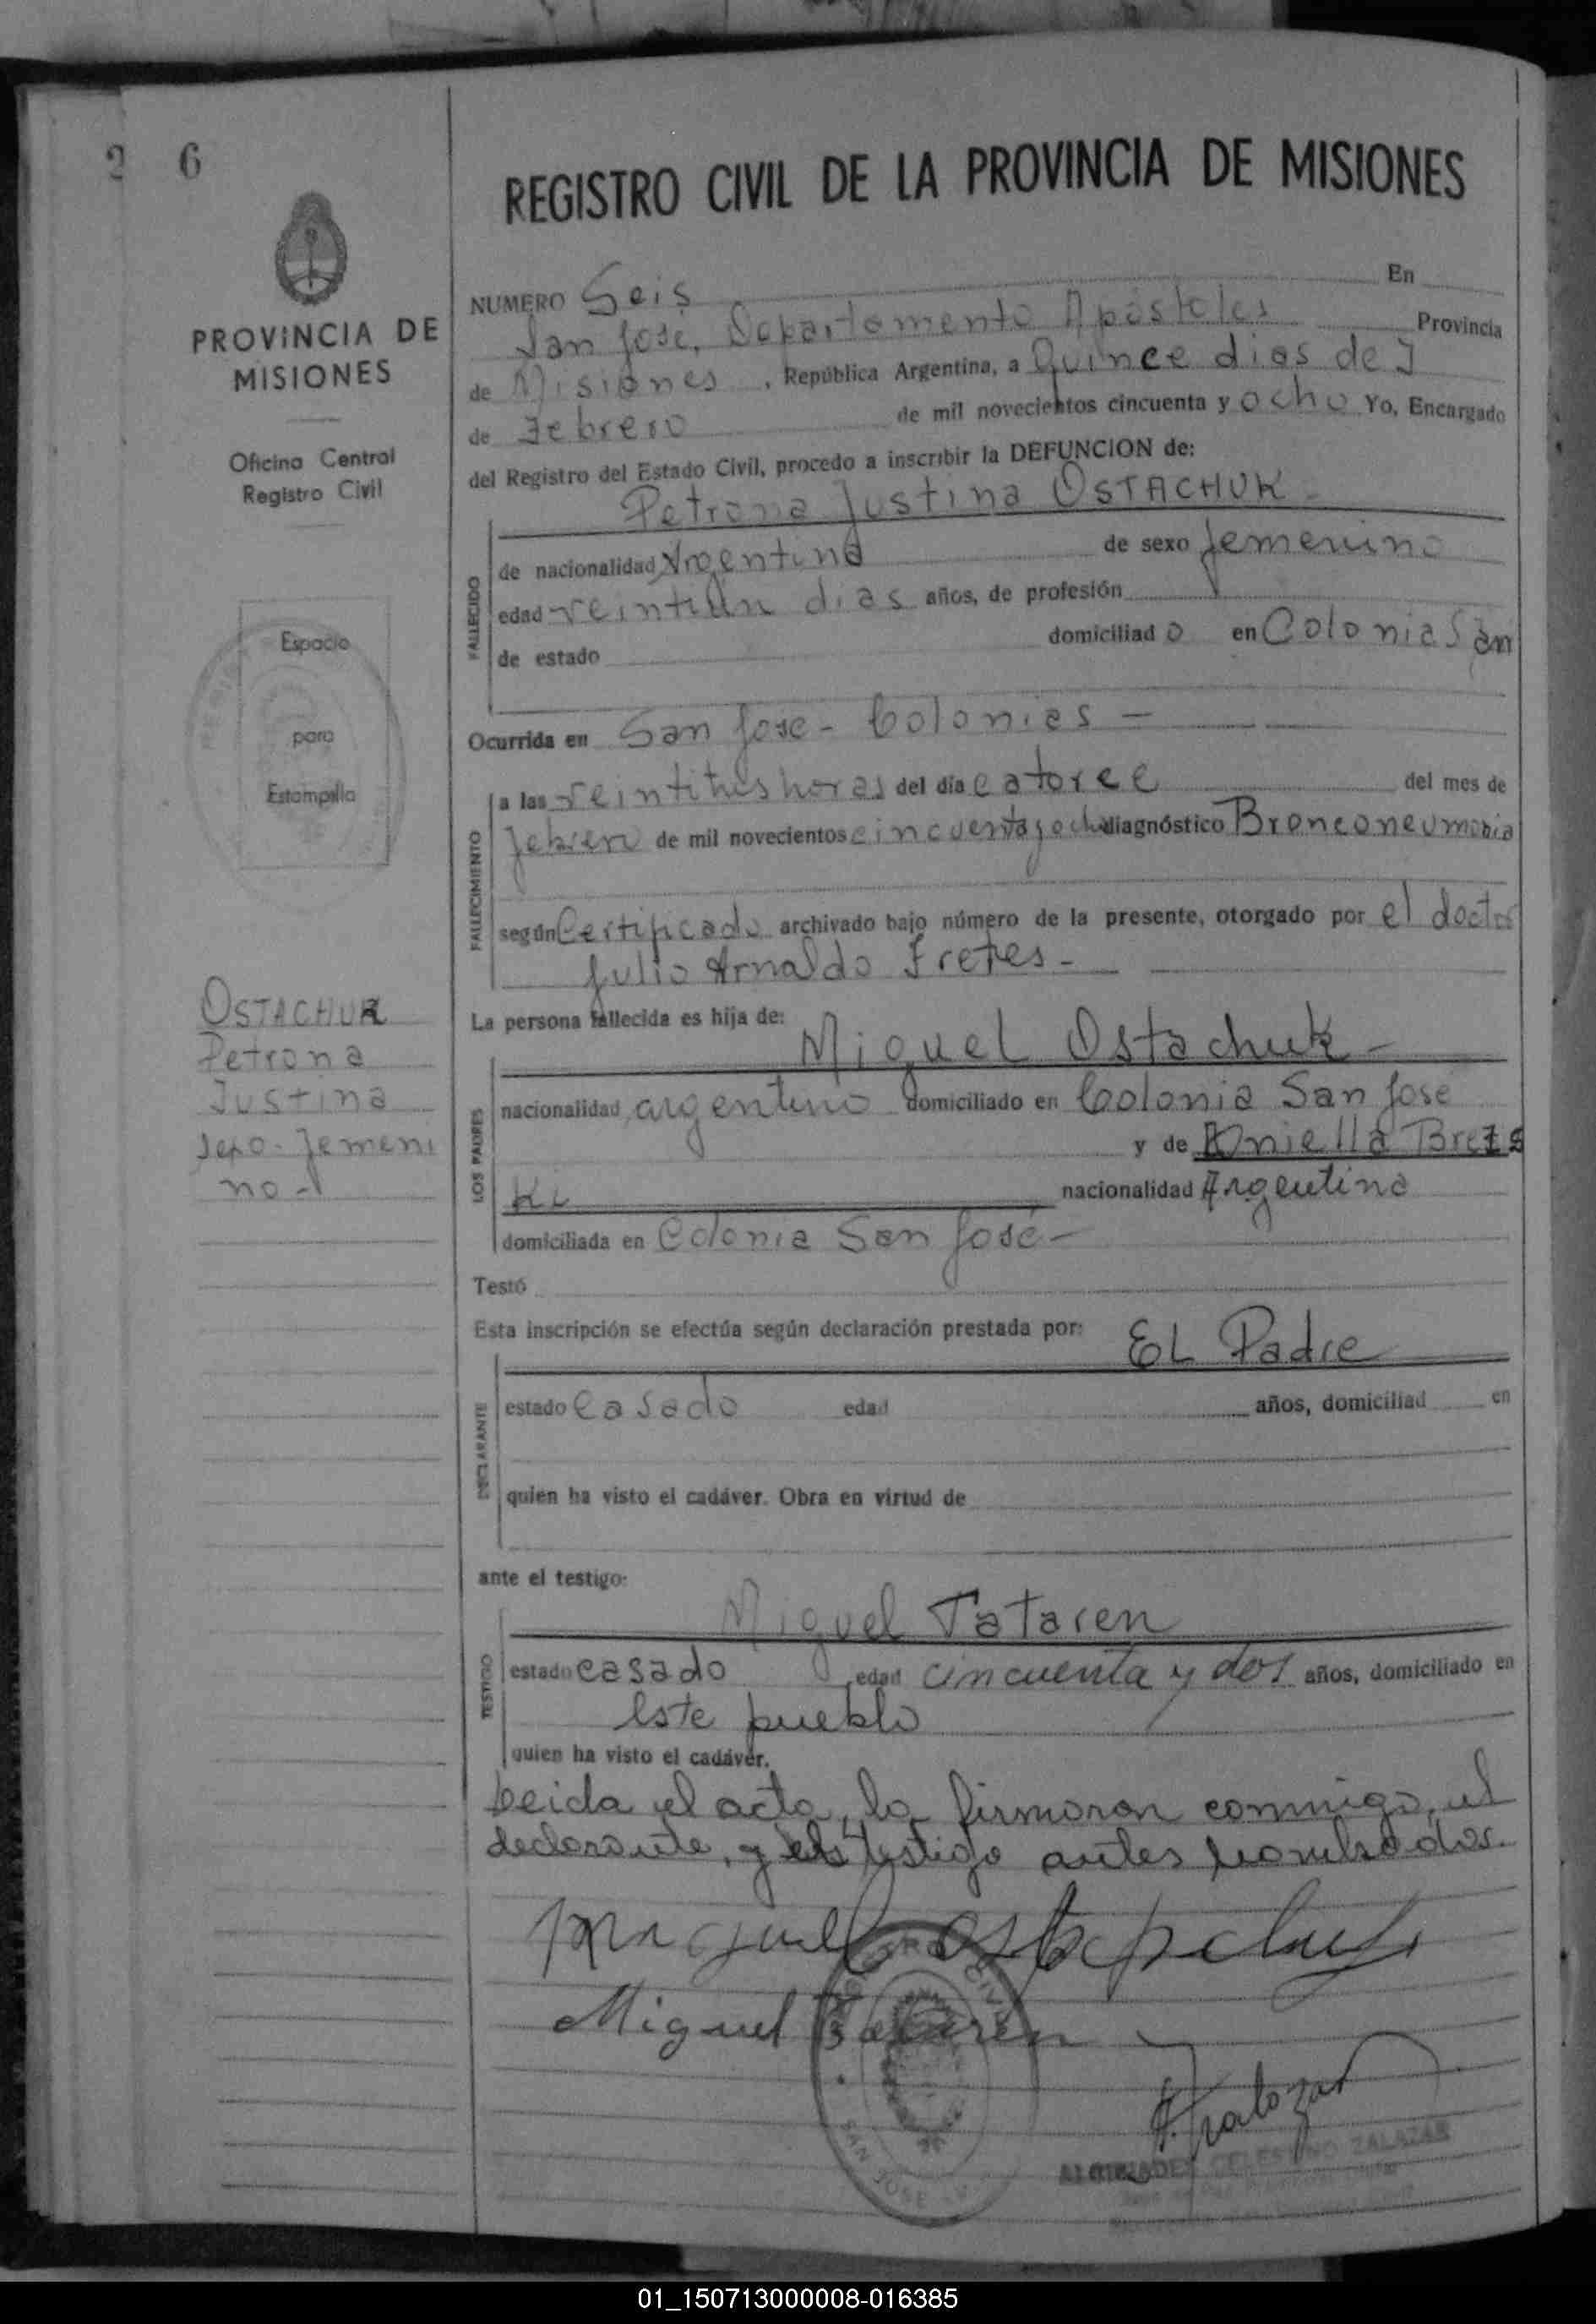 2 6
REGISTRO CIVIL DE LA PROVINCIA DE MISIONES
PROVINCIA DE
MISIONES
Oficina Central
Registro Civil
Espacio
para
Estampilla
OSTACHUK
Petrona
Justina
sexo-femeni
no-
NUMERO Seis En
San José, Departamento Apóstoles Provincia
de Misiones, República Argentina, a Quince dias de
de Febrero de mil novecientos cincuenta y ocho Yo, Encargado
del Registro del Estado Civil, procedo a inscribir la DEFUNCION de:
Petrona Justina OSTACHUK-
FALLECIDO
de nacionalidad Argentina de sexo femenino
edad veintiun dias años, de profesión
de estado domiciliado en Colonia San
Ocurrida en San José- Colonias-
FALLECIMIENTO
a las veintitres horas del día catorce del mes de
febrero de mil novecientos cincuenta y ocho diagnóstico Bronconeumonia
según Certificado archivado bajo número de la presente, otorgado por el doctor
Julio Arnaldo Fretes-
La persona fallecida es hija de:
Miguel Ostachuk-
LOS PADRES
nacionalidad argentino domiciliado en Colonia San José
y de Aniella Brezs
ki nacionalidad Argentina
domiciliada en Colonia San José-
Testó
Esta inscripción se efectúa según declaración prestada por:
EL Padre
DECLARANTE
estado casado edad años, domiciliad en
quien ha visto el cadáver. Obra en virtud de
ante el testigo:
Miguel Tataren
TESTIGO
estado casado edad cincuenta y dos años, domiciliado en
este pueblo
quien ha visto el cadáver.
Leida el acta, la firmaron conmigo, el
declarante, y el testigo antes nombrados.
Miguel
Miguel Tataren
SAN JOSE
CELESTINO ZALAZAR
01_150713000008-016385